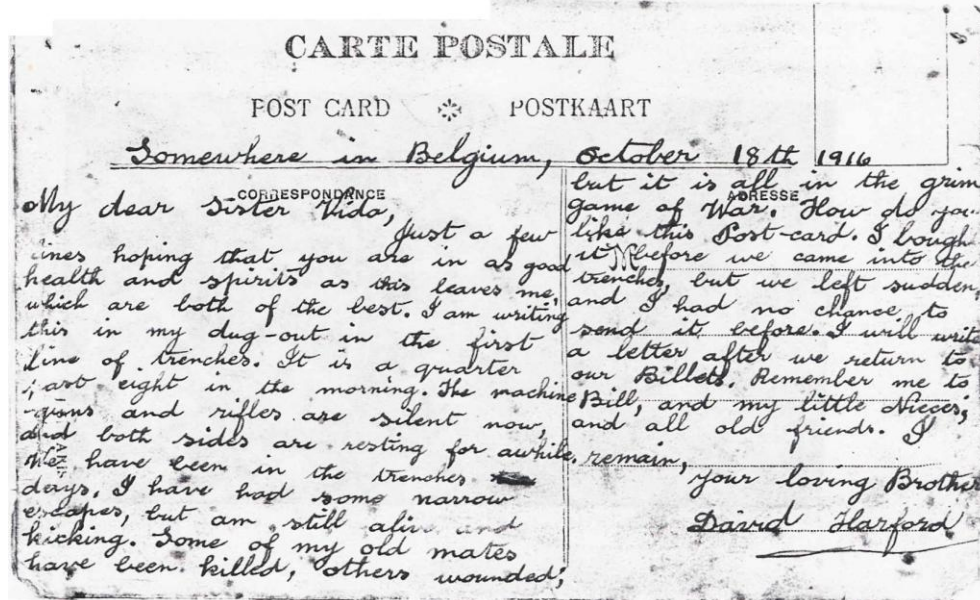 CARTE POSTALE
POST CARD POSTKAART
Somewhere in Belgium, October 18th 1916
CORRESPONDANCE
My dear Sister Vida,
Just a few
lines hoping that you are in as good
health and spirits as this leaves me,
which are both of the best. I am writing
this in my dug-out in the first
line of trenches. It is a quarter
past eight in the morning. The machine
-guns and rifles are silent now,
and both sides are resting for awhile.
We have been in the trenches
days. I have had some narrow
escapes, but am still alive and
kicking. Some of my old mates
have been killed, others wounded;
ADRESSE
but it is all in the grim
game of War. How do you
like this Post-card. I bought
it before we came into the
trenches, but we left sudden,
and I had no chance to
send it before. I will write
a letter after we return to
our Billets. Remember me to
Bill, and my little Nieces,
and all old friends. I
remain,
your loving Brother
David Harford